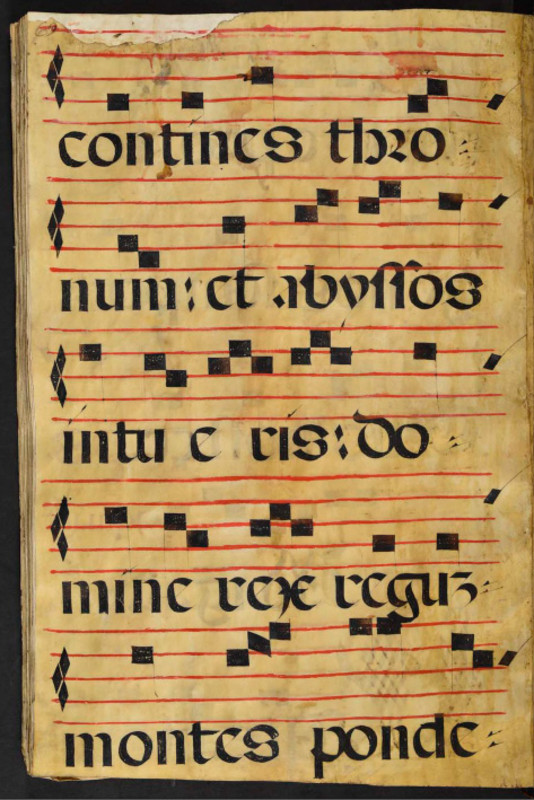 contines thro
num: et abyssos
intu e ris: do
mine rex reguz
montes ponde